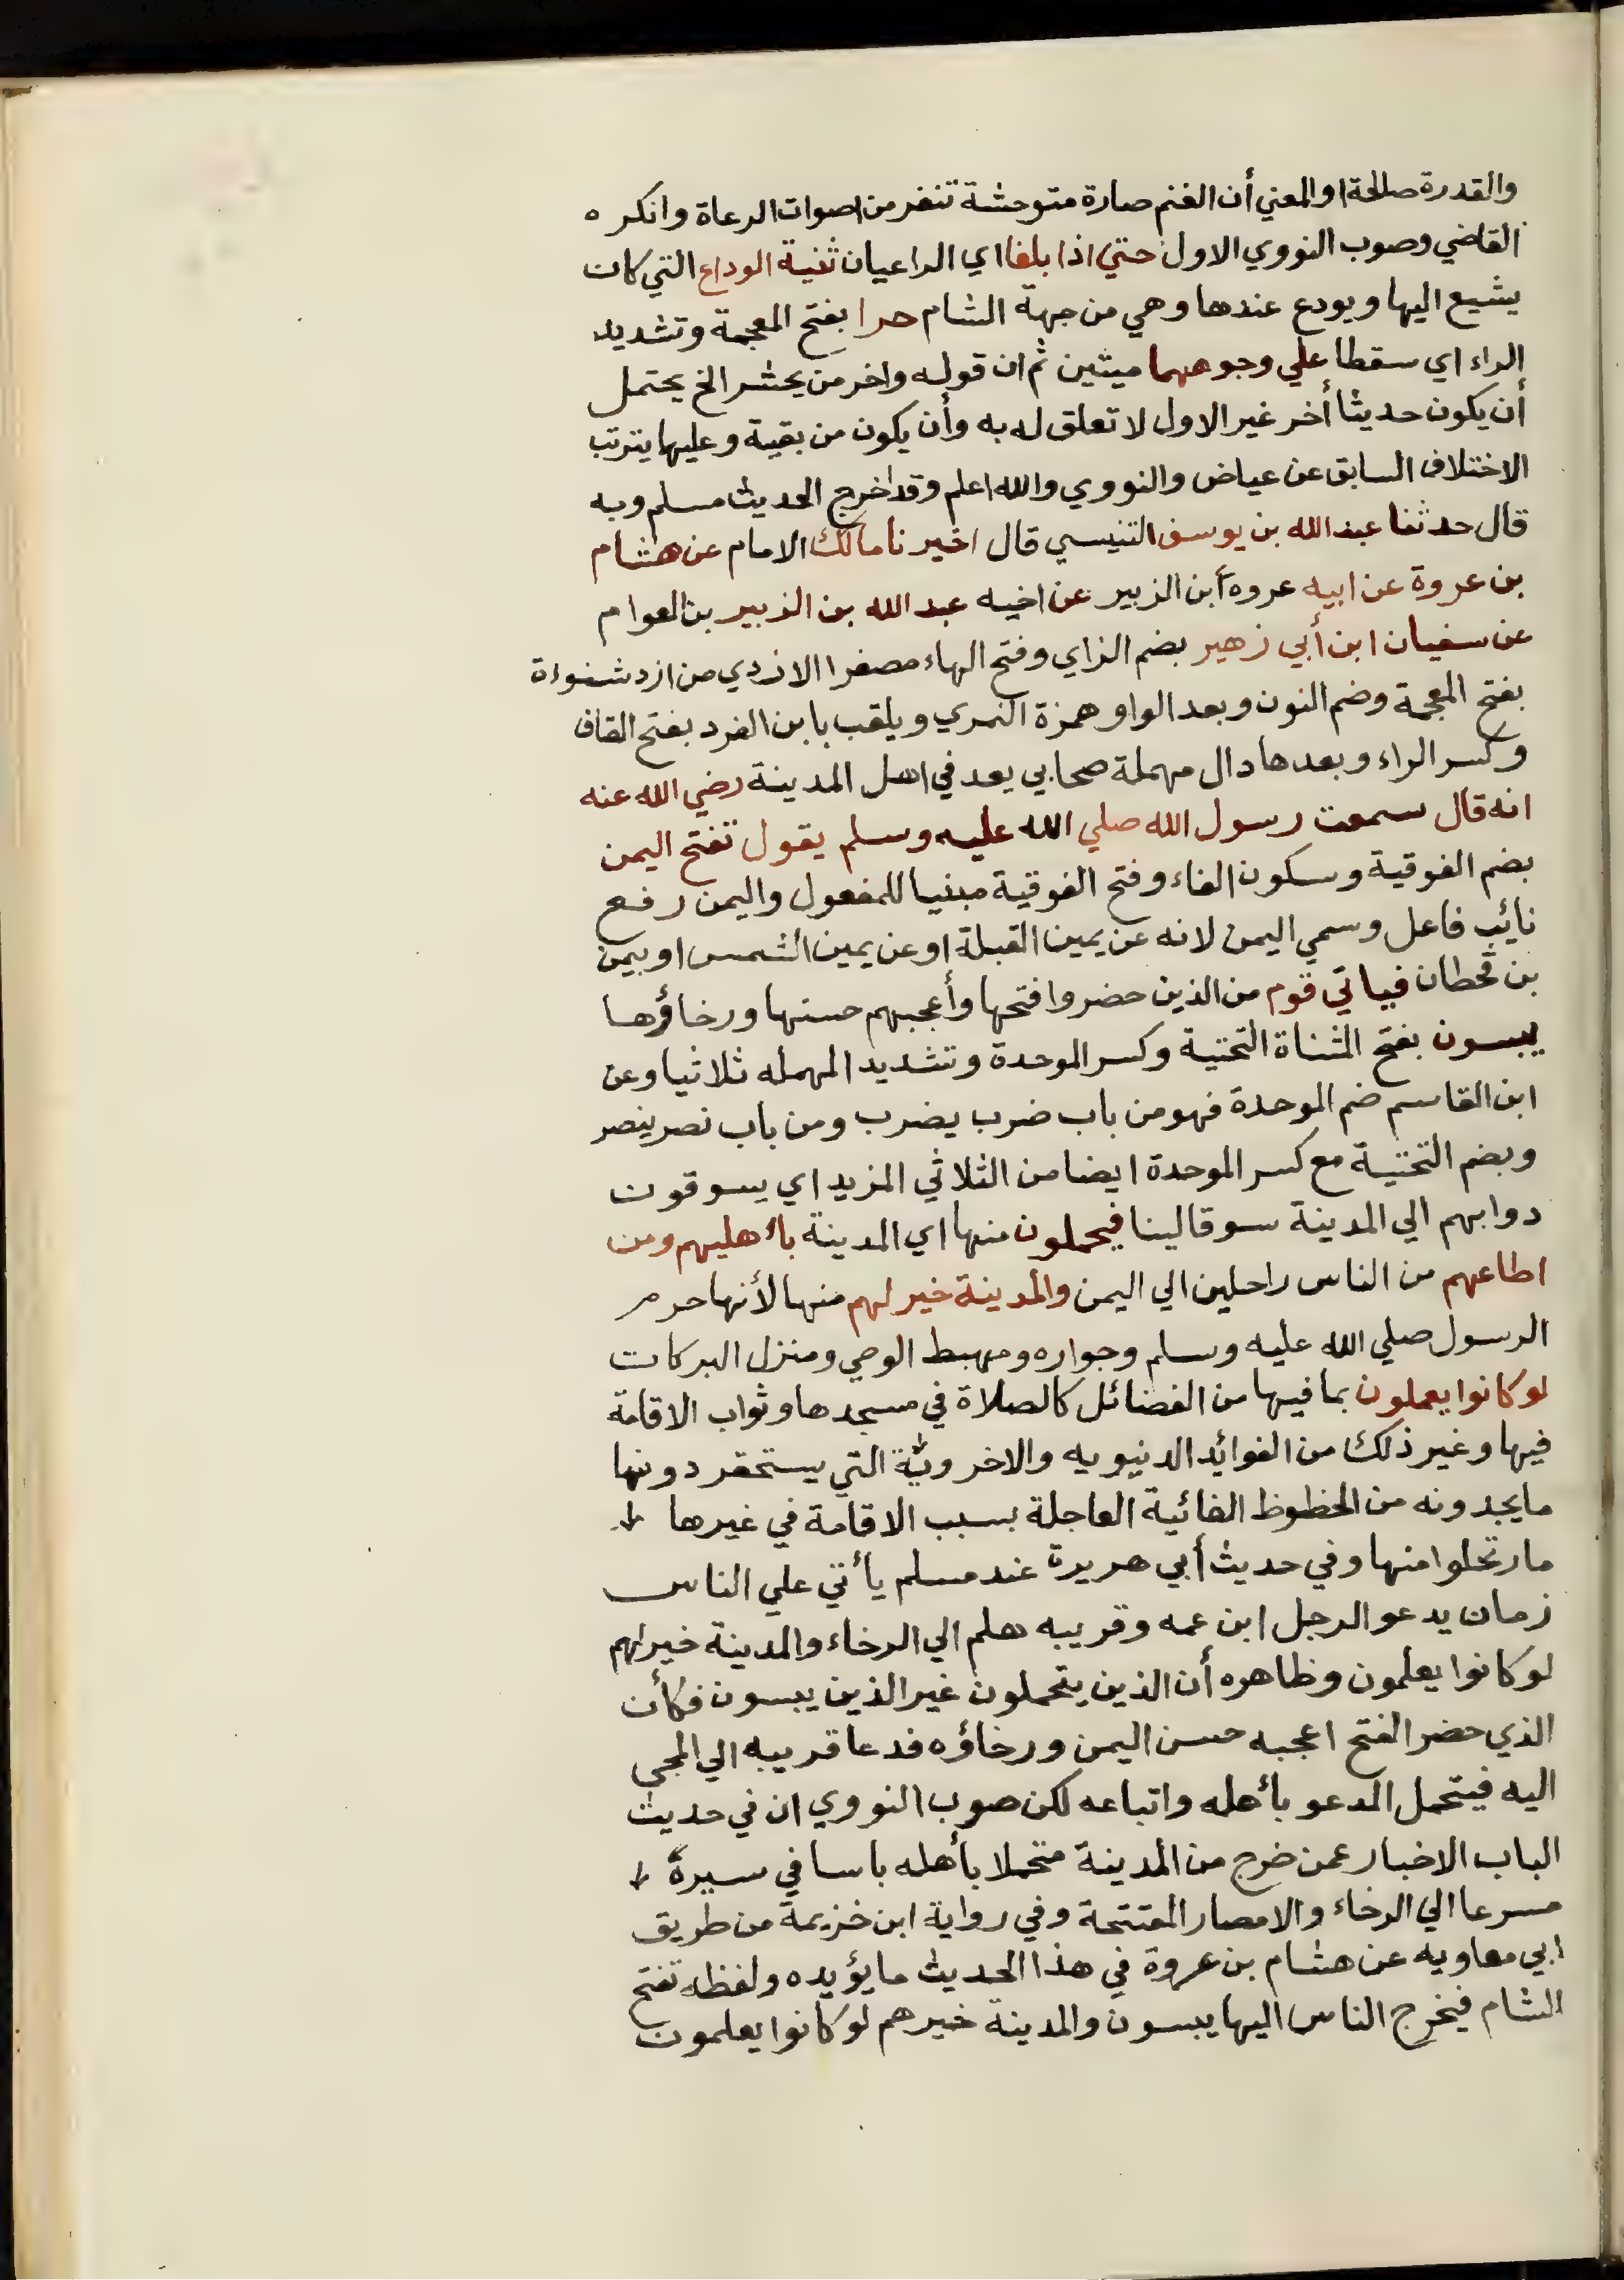 والقدرة صالحة او المعني أن الغنم صارة متوحشة تنفر من اصوات الرعاة وانكره
القاضي وصوب النووي الاول حتي اذا بلغا اي الراعيان ثنية الوداع التي كان
يشيع اليها ويودع عندها وهي من جهة الشام خرا بفتح المعجمة وتشديد
الراء اي سقطا علي وجوههما ميتين ثم ان قوله واخر من يحشر الخ يحتمل
أن يكون حديثا أخر غير الاول لا تعلق له به وأن يكون من بقية وعليها يترتب
الاختلاف السابق عن عياض والنووي والله اعلم وقد اخرج الحديث مسلم وبه
قال حدثنا عبد الله بن يوسف التنيسي قال اخبرنا مالك الامام عن هشام
بن عروة عن ابيه عروه أبن الزبير عن اخيه عبد الله بن الزبير بن العوام
عن سفيان ابن أبي زهير بضم الزاي وفتح الهاء مصغرا الازدي من ازد شنوءة
بفتح المعجمة وضم النون وبعد الواو همزة النمري ويلقب بابن القرد بفتح القاف
وكسر الراء وبعدها دال مهملة صحابي يعد في اهل المدينة رضي الله عنه
انه قال سمعت رسول الله صلي الله عليه وسلم يقول تفتح اليمن
بضم الفوقية وسكون الفاء وفتح الفوقية مبنيا للمفعول واليمن رفع
نائب فاعل وسمي اليمن لانه عن يمين القبلة او عن يمين الشمس او بيمن
بن قحطان فياتي قوم من الذين حضروا فتحها وأعجبهم حسنها ورخاؤها
يبسون بفتح المثناة التحتية وكسر الموحدة وتشديد المهمله ثلاثيا وعن
ابن القاسم ضم الموحدة فهو من باب ضرب يضرب ومن باب نصر ينصر
وبضم التحتية مع كسر الموحدة ايضا من الثلاثي المزيد اي يسوقون
دوابهم الي المدينة سوقا لينا فيحملون منها اي المدينة بأهليهم ومن
اطاعهم من الناس راحلين الي اليمن والمدينة خير لهم منها لأنها حرم
الرسول صلي الله عليه وسلم وجواره ومهبط الوحي ومنزل البركات
لو كانوا يعملون بما فيها من الفضائل كالصلاة في مسجدها وثواب الاقامة
فيها وغير ذلك من الفوائد الدنيويه والاخروية التي يستحقر دونها
ما يجدونه من الحظوظ الفائية العاجلة بسبب الاقامة في غيرها
مارتحلوا منها وفي حديث أبي هريرة عند مسلم يأتي علي الناس
زمان يدعو الرجل ابن عمه وقريبه هلم الي الرخاء والمدينة خير لهم
لو كانوا يعلمون وظاهره أن الذين يتحملون غير الذين يبسون فكأن
الذي حضر الفتح اعجبه حسن اليمن ورخاؤه فدعا قريبه الي المجي
اليه فيتحمل المدعو بأهله واتباعه لكن صوب النووي ان في حديث
الباب الاخبار عمن خرج من المدينة متحملا بأهله باسا في سيرة
مسرعا الي الرخاء والامصار المفتتحة وفي رواية ابن خزيمة من طريق
ابي معاويه عن هشام بن عروة في هذا الحديث ما يؤيده ولفظه تفتح
الشام فيخرج الناس اليها يبسون والمدينة خيرهم لو كانوا يعلمون